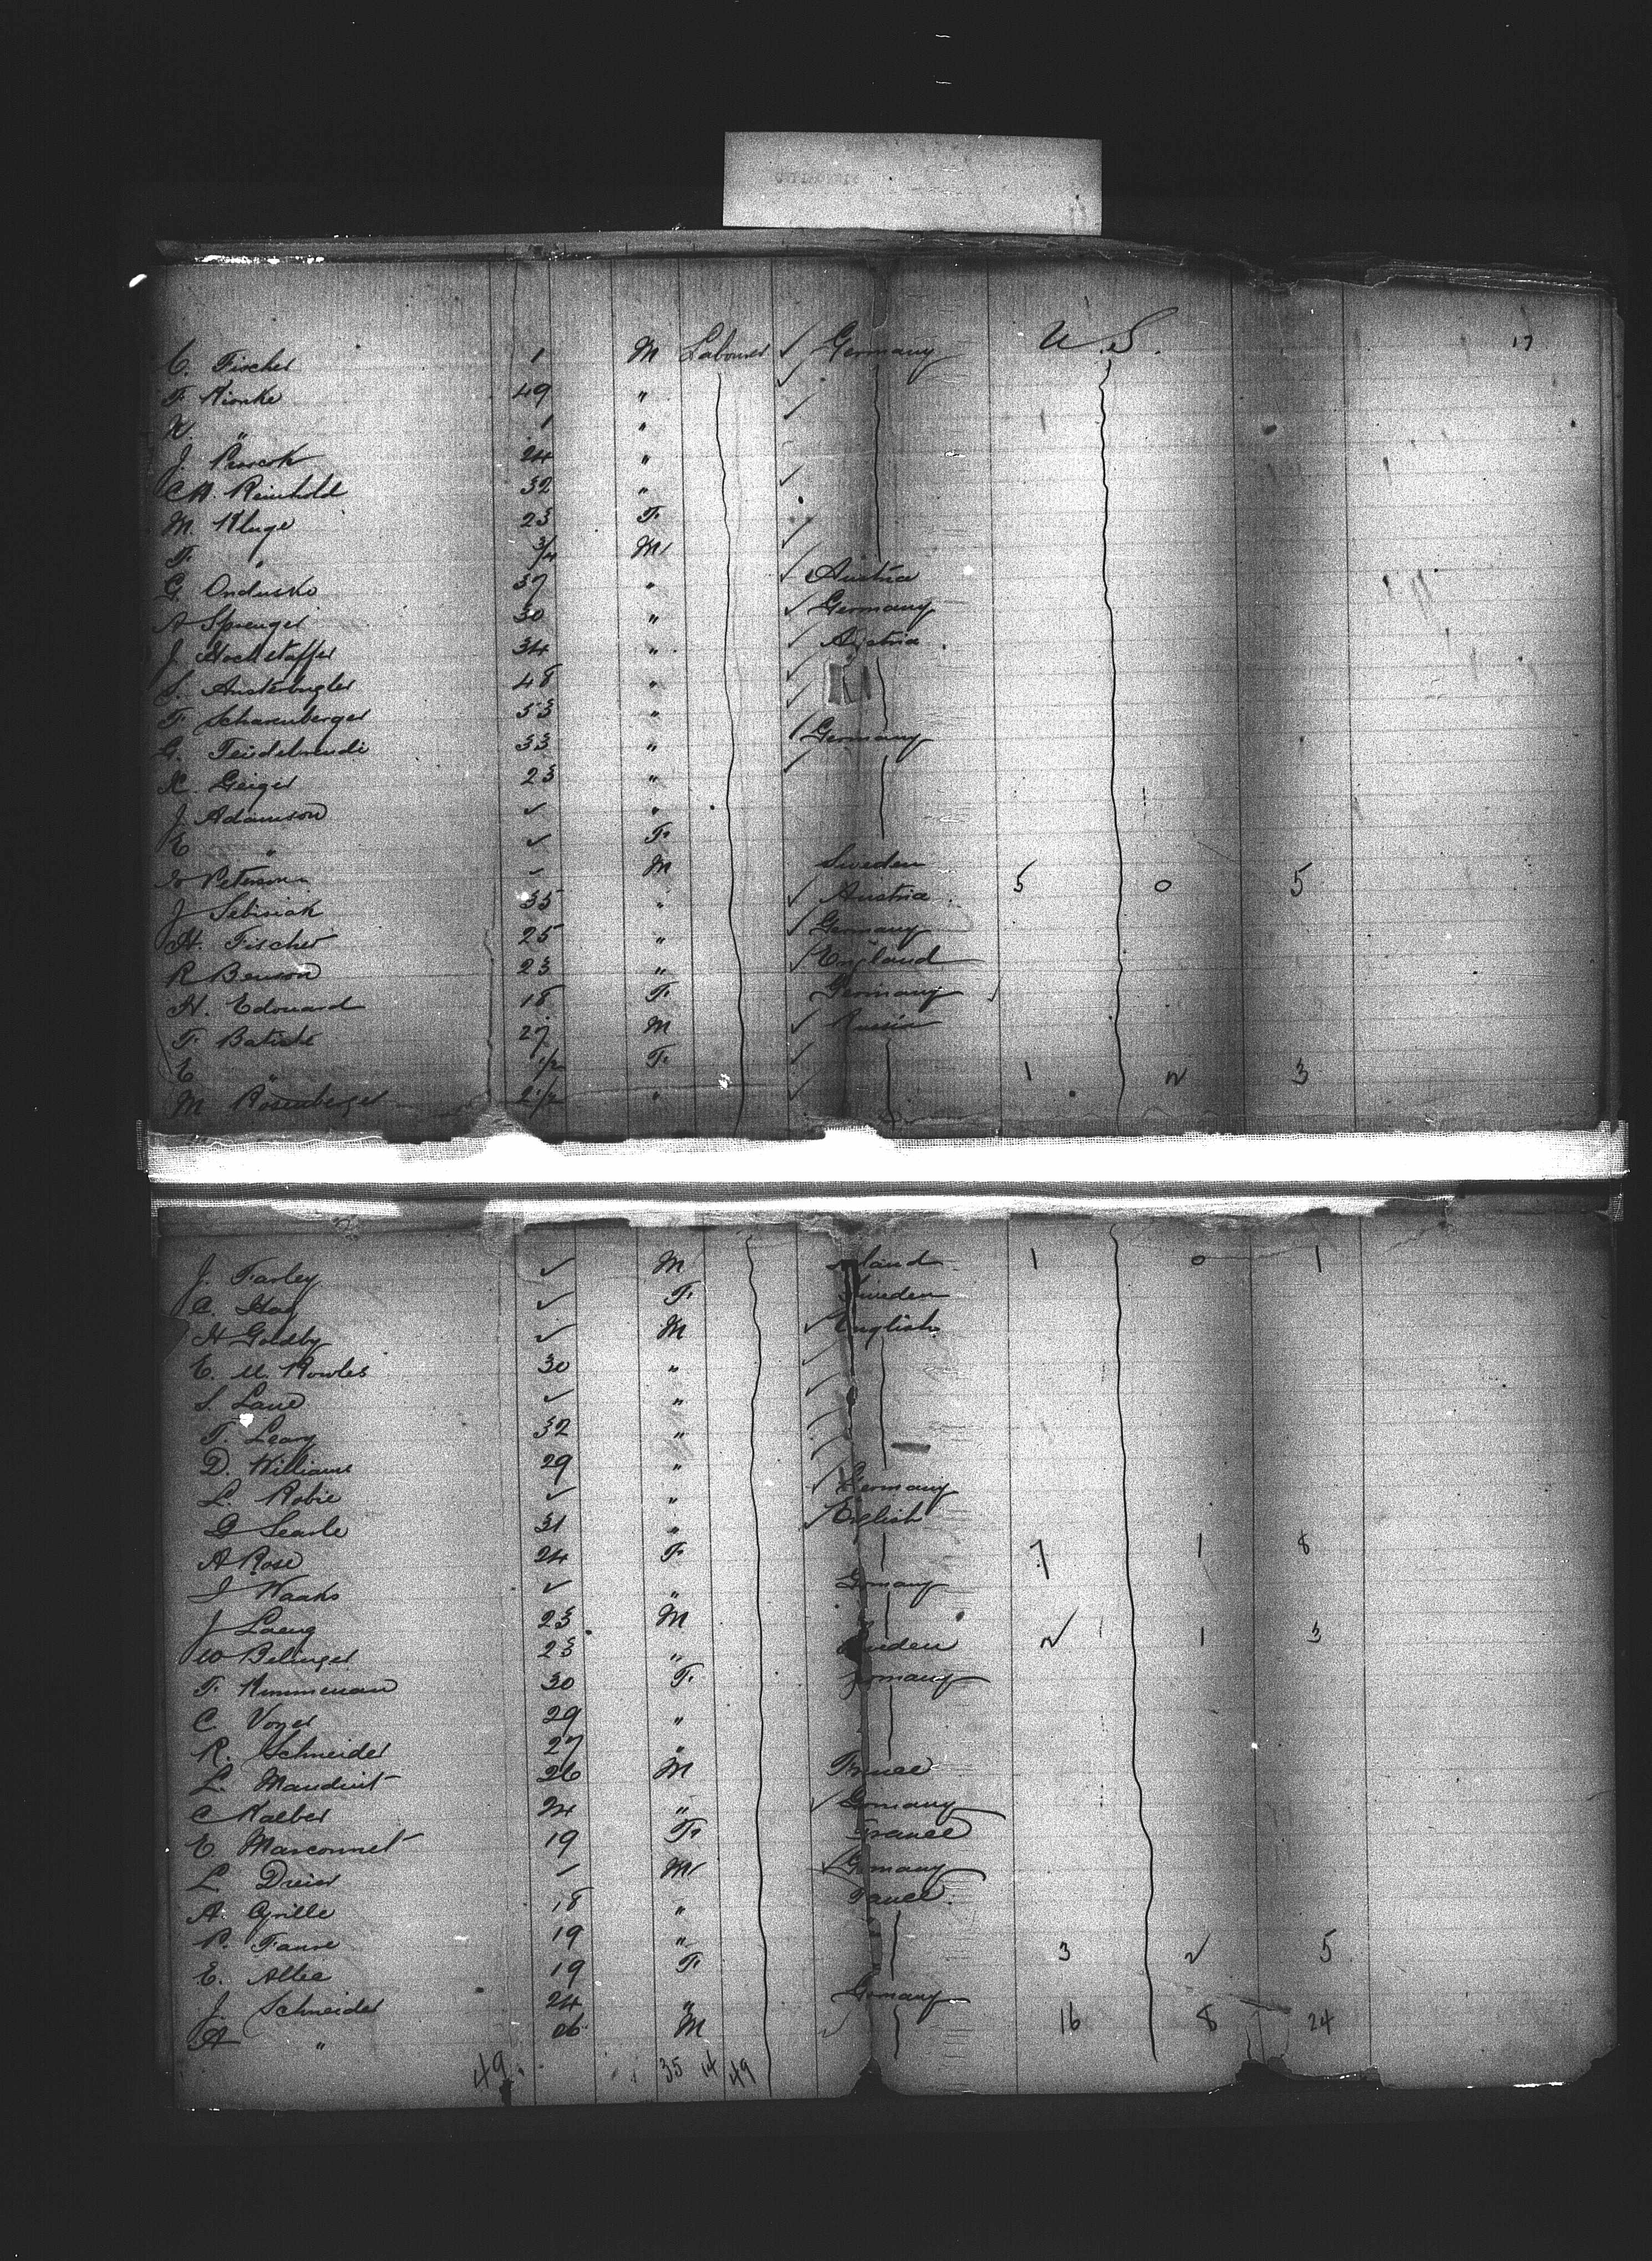 17
C. Fischer 1 M Labourer ✓ Germany U.S.
F. Kionke 49 " ✓
" 1 " ✓
J. 24 "
C.A. Reinhold 32 " ✓
M. Kluge 23 F. ✓
F. " 3/4 M ✓
G. Ondusko 37 " ✓ Austria
A Sprenger 30 " ✓ Germany
J. Hochstaffer 34 " ✓ Austria
S. 48 " ✓
F. Scharenberger 33 " ✓
G. 33 " ✓ Germany
K. Geiger 23 " ✓
J. Adamson ✓ "
E " ✓ F.
Peterson - M Sweden 5 0 5
J 35 " ✓ Austria
H. Fischer 25 " ✓ Germany
R Benson 23 " ✓ England
H. Edouard 18 F. Germany
F. Batiste 27 M ✓ Russia
E " 1/2 F. ✓ 1 2 3
M Rosenberger 2 1/2 " ✓
J. Farley ✓ M land 1 0 1
C. Hag ✓ F. Sweden
H Goldby ✓ M ✓ English
E. M. Kowles 30 " ✓
S. Lane ✓ " ✓
T. Leary 32 " ✓
D. Williams 29 " ✓
L. Robie ✓ " ✓ Germany
G Searle 31 " ✓ English
A Rose 24 F. 7 1 8
J Waaks ✓ " Germany
J Laeng 23 M
W Belinger 23 " Sweden 2 1 3
F. Kimmenau 30 F. Germany
C. Voyer 29 "
R. Schneider 27 "
L. Mauduit 26 M France
C Kaelber 24 " ✓ Germany
E. Marconnet 19 F. France
L Dreier - M ✓ Germany
A. Grille 18 " France
P. Faure 19 "
E. Allee 19 F. 3 2 5
J. Schneider 24 " Germany
A " 26 M ✓ 16 8 24
49 35 14 49